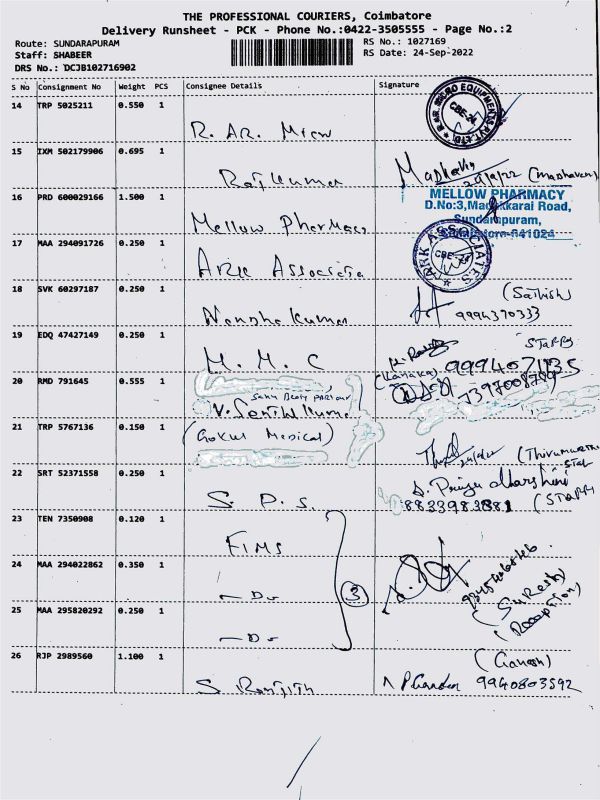 THE PROFESSIONAL COURIERS, Coimbatore
Delivery Runsheet - PCK - Phone No.:0422-3505555 - Page No.:2
Route: SUNDARAPURAM
RS No.: 1027169
Staff: SHABEER
RS Date: 24-Sep-2022
DRS No.: DCJB102716902
S No Consignment No Weight PCS Consignee Details Signature
14 TRP 5025211 0.550 1
R. AR. Micro
CBE-24
15 IXM 502179906 0.695 1
Rajkumar
24/9/22 (Madhavan)
16 PRD 600029166 1.500 1
Mellow Pharmacy
MELLOW PHARMACY
D.No:3, Madukkarai Road,
Sundarapuram,
Coimbatore-641024
17 MAA 294091726 0.250 1
Ark Associate
ARK ASSOCIATES
CBE-24
18 SVK 60297187 0.250 1
(Sathish)
9994370333
19 EDQ 47427149 0.250 1
M. M. C
STAFF
(Kanaka) 9994071135
20 RMD 791645 0.555 1
V. Senthil Kumar
7397008789
21 TRP 5767136 0.150 1
(Gokul Medical)
22 SRT 52371558 0.250 1
S. D. S.
(STAFF)
8833983881
23 TEN 7350908 0.120 1
FIMS
24 MAA 294022862 0.350 1
- Do
3
25 MAA 295820292 0.250 1
- Do
(Suresh)
(Reception)
26 RJP 2989560 1.100 1
S. Ranjith
(Ganesh)
9940803592